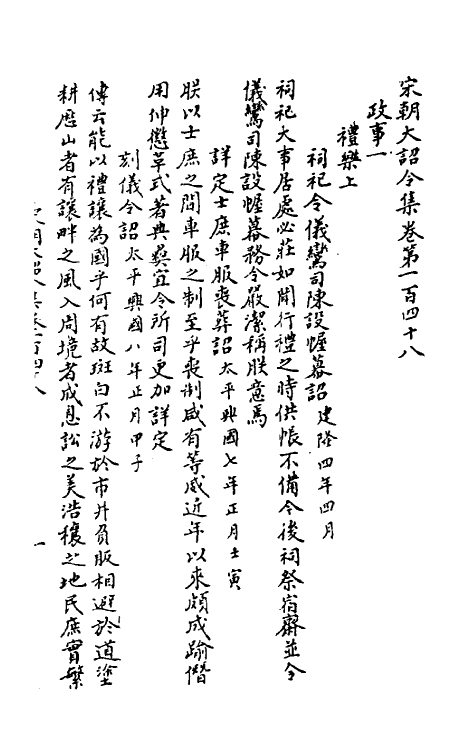 宋朝大詔令集卷第一百四十八
政事一
禮樂上
祠祀令儀鸞司陳設幄幕詔建隆四年四月
祠祀大事居處必莊如聞行禮之時供帳不備令後祠祭宿齋並令
儀鸞司陳設幄幕務令嚴潔稱朕意焉
詳定士庶車服喪葬詔太平興國七年正月壬寅
朕以士庶之間車服之制至乎喪制咸有等威近年以來頗成踰僭
用伸懲革式著典彝宜令所司更加詳定
刻儀令詔太平興國八年正月甲子
傳云能以禮讓為國乎何有故斑白不游於市井負販相避於道塗
耕歷山者有讓畔之風入周境者成息訟之美浩穰之地民庶實繁
一